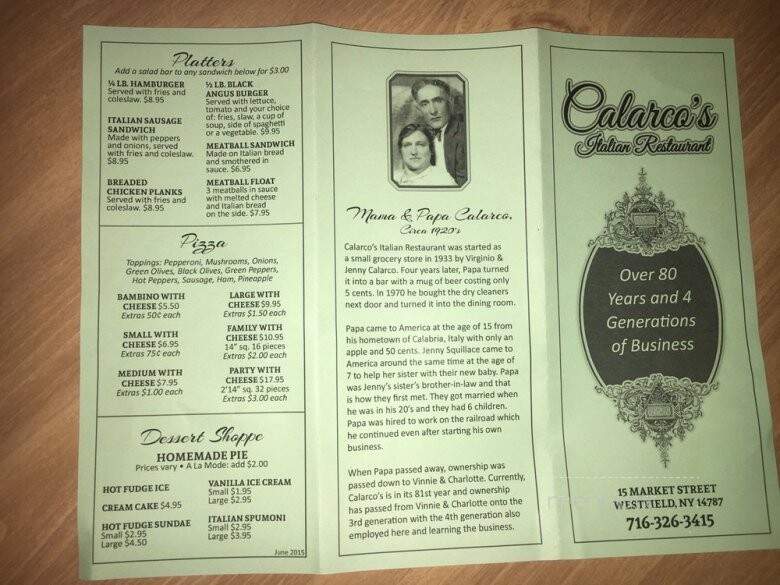 Platters
Add a salad bar to any sandwich below for $3.00
¼ LB. HAMBURGER
Served with fries and
coleslaw. $8.95
ITALIAN SAUSAGE
SANDWICH
Made with peppers
and onions, served
with fries and coleslaw.
$8.95
BREADED
CHICKEN PLANKS
Served with fries and
coleslaw. $8.95
½ LB. BLACK
ANGUS BURGER
Served with lettuce,
tomato and your choice
of: fries, slaw, a cup of
soup, side of spaghetti
or a vegetable. $9.95
MEATBALL SANDWICH
Made on Italian bread
and smothered in
sauce. $6.95
MEATBALL FLOAT
3 meatballs in sauce
with melted cheese
and Italian bread
on the side. $7.95
Pizza
Toppings: Pepperoni, Mushrooms, Onions,
Green Olives, Black Olives, Green Peppers,
Hot Peppers, Sausage, Ham, Pineapple
BAMBINO WITH
CHEESE $5.50
Extras 50¢ each
SMALL WITH
CHEESE $6.95
Extras 75¢ each
MEDIUM WITH
CHEESE $7.95
Extras $1.00 each
LARGE WITH
CHEESE $9.95
Extras $1.50 each
FAMILY WITH
CHEESE $10.95
14" sq. 16 pieces
Extras $2.00 each
PARTY WITH
CHEESE $17.95
2'14" sq. 32 pieces
Extras $3.00 each
Dessert Shoppe
HOMEMADE PIE
Prices vary • A La Mode: add $2.00
HOT FUDGE ICE
CREAM CAKE $4.95
HOT FUDGE SUNDAE
Small $2.95
Large $4.50
VANILLA ICE CREAM
Small $1.95
Large $2.95
ITALIAN SPUMONI
Small $2.95
Large $3.95
June 2015
Mama & Papa Calarco,
Circa 1920's
Calarco's Italian Restaurant was started as
a small grocery store in 1933 by Virginio &
Jenny Calarco. Four years later, Papa turned
it into a bar with a mug of beer costing only
5 cents. In 1970 he bought the dry cleaners
next door and turned it into the dining room.
Papa came to America at the age of 15 from
his hometown of Calabria, Italy with only an
apple and 50 cents. Jenny Squillace came to
America around the same time at the age of
7 to help her sister with their new baby. Papa
was Jenny's sister's brother-in-law and that
is how they first met. They got married when
he was in his 20's and they had 6 children.
Papa was hired to work on the railroad which
he continued even after starting his own
business.
When Papa passed away, ownership was
passed down to Vinnie & Charlotte. Currently,
Calarco's is in its 81st year and ownership
has passed from Vinnie & Charlotte onto the
3rd generation with the 4th generation also
employed here and learning the business.
Calarco's
Italian Restaurant
Over 80
Years and 4
Generations
of Business
15 MARKET STREET
WESTFIELD, NY 14787
716-326-3415